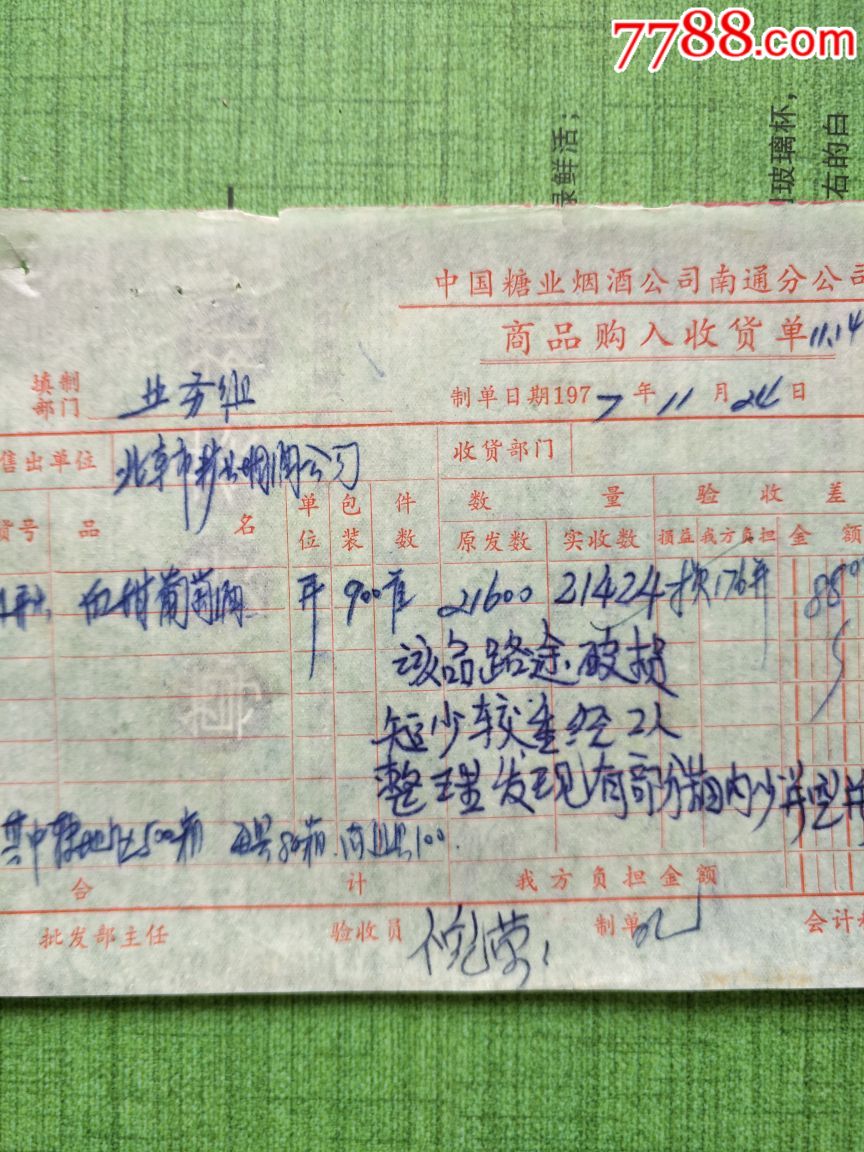 7788.com
绿鲜活；
玻璃杯，
右的白
中国糖业烟酒公司南通分公司
商品购入收货单 11.14
填制部门 业务组
制单日期1977年11月24日
售出单位 北京市糖业烟酒公司 收货部门
货号 品名 单位 包装 件数 数量 验收差
原发数 实收数 损益 我方负担 金额
白甜葡萄酒 瓶 900 21600 21424 损176瓶 88
该品路途破损
短少较重经2人
整理发现有部分箱内少并空并
其中 500箱 80箱 100.
合计 我方负担金额
批发部主任 验收员 倪荣 制单 会计